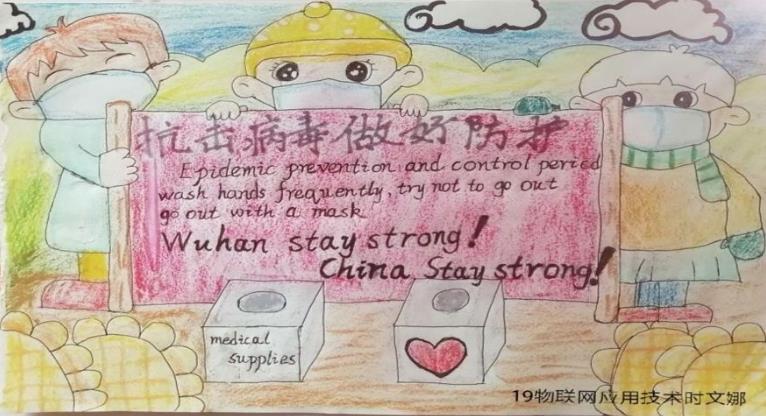 抗击病毒做好防护
Epidemic prevention and control period
wash hands frequently, try not to go out
go out with a mask
Wuhan stay strong!
China Stay strong!
medical
supplies
19物联网应用技术时文娜